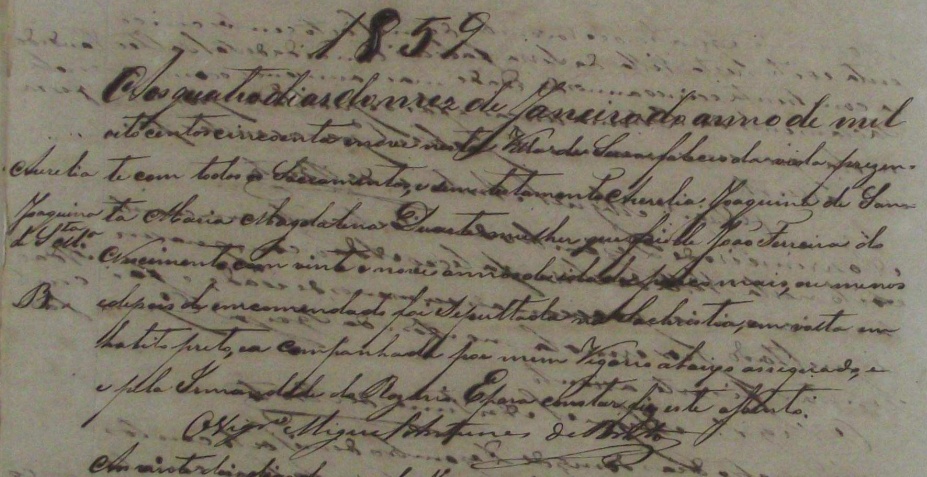 1859
Aos quatro dias do mez de Janeiro do anno de mil
oito centos cincoenta e nove nesta Villa de faleceo da vida prezen-
Aurelia
te com todos os Sacramentos, e sem testamento Aurelia Joaquina de San-
Joaquina
ta Maria Magdalena Duarte mulher que foi de João Ferreira do
d' S.ta
Nascimento com vinte e nove annos de idade mais, ou menos
B
e depois de encomendada foi sepultada na Sachristia, em volta em
habito preto, e a companhada por mim Vigario abaixo assignado, e
e pela Irmandade do Rozario. E para constar fiz este assento.
O Vigr.o Miguel Antunes de Brito